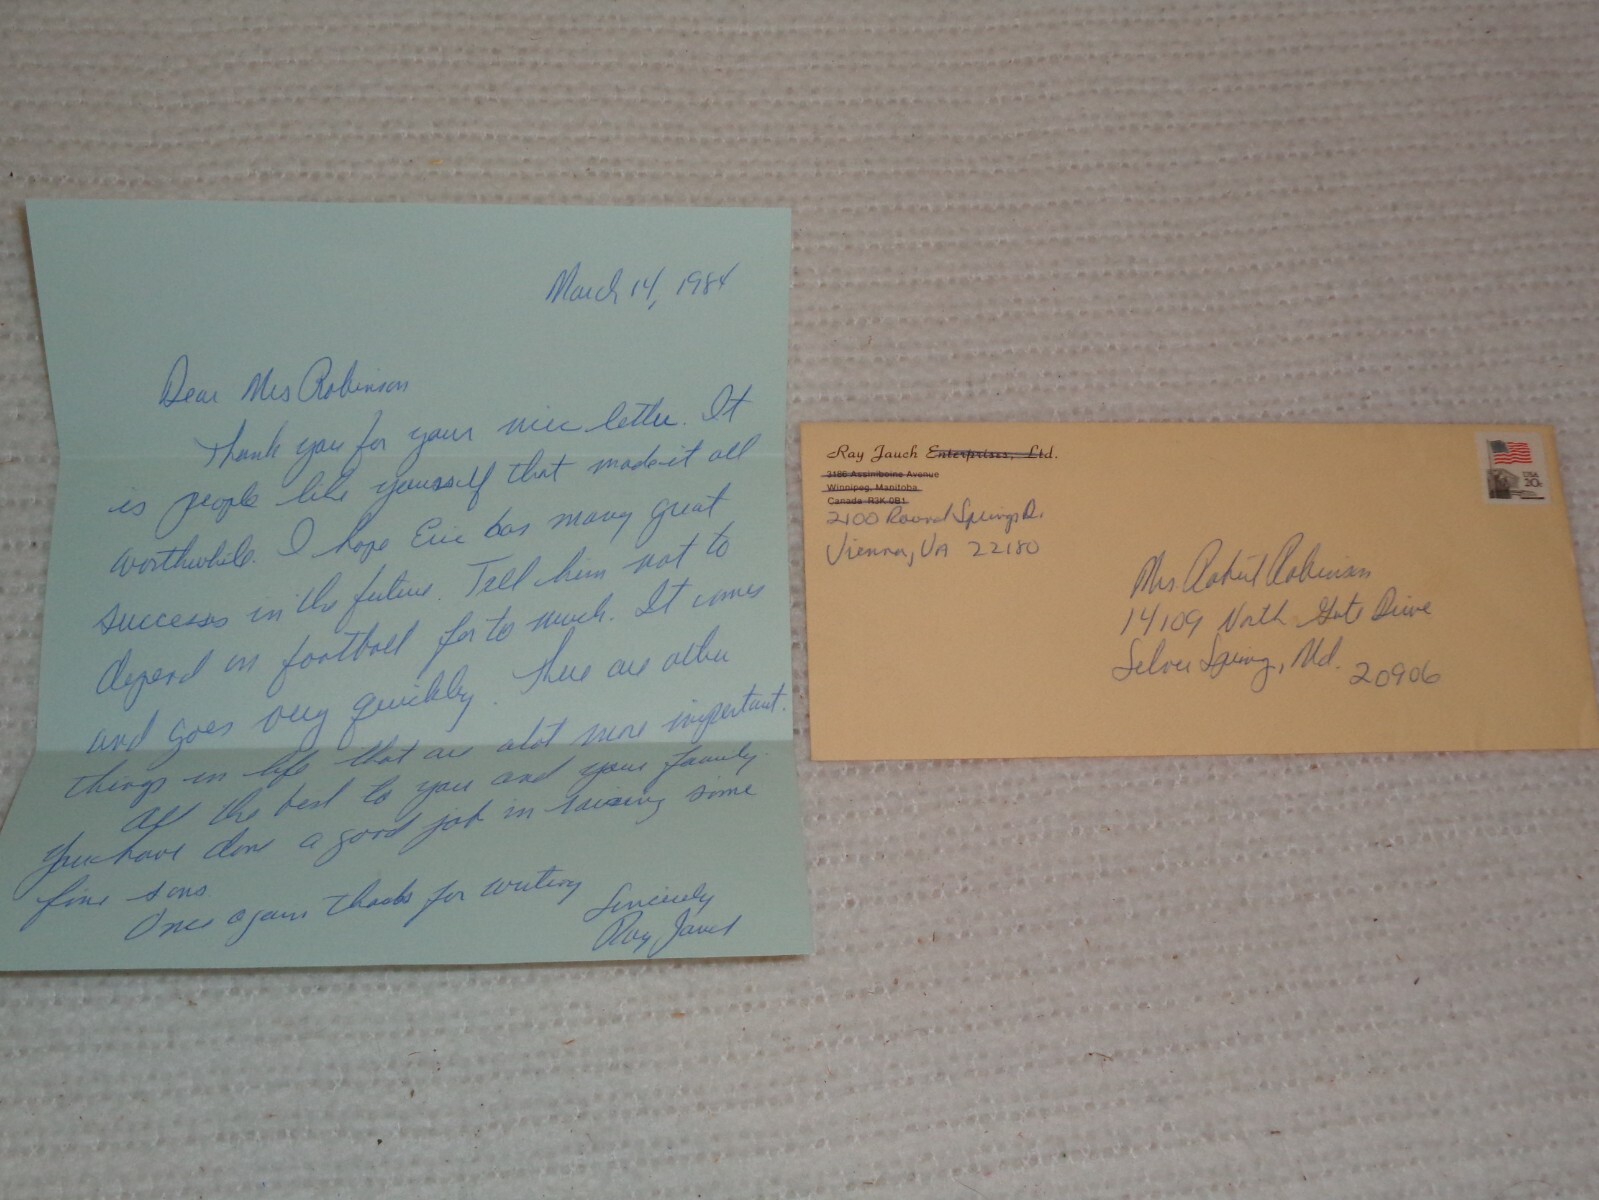 March 14, 1984
Dear Mrs Robinson
Thank you for your nice letter. It
is people like yourself that made it all
worthwhile. I hope Eric has many great
successes in the future. Tell him not to
depend on football for to much. It comes
and goes very quickly. There are other
things in life that are alot more important.
All the best to you and your family.
You have done a good job in raising some
fine sons
Once again thanks for writing
Sincerely
Ray Jauch
Ray Jauch Enterprises, Ltd.
3186 Assiniboine Avenue
Winnipeg, Manitoba
Canada R3K 0B1
2100 Round Springs Dr.
Vienna, VA 22180
USA
20c
Mrs Robert Robinson
14109 North Gate Drive
Silver Spring, Md. 20906